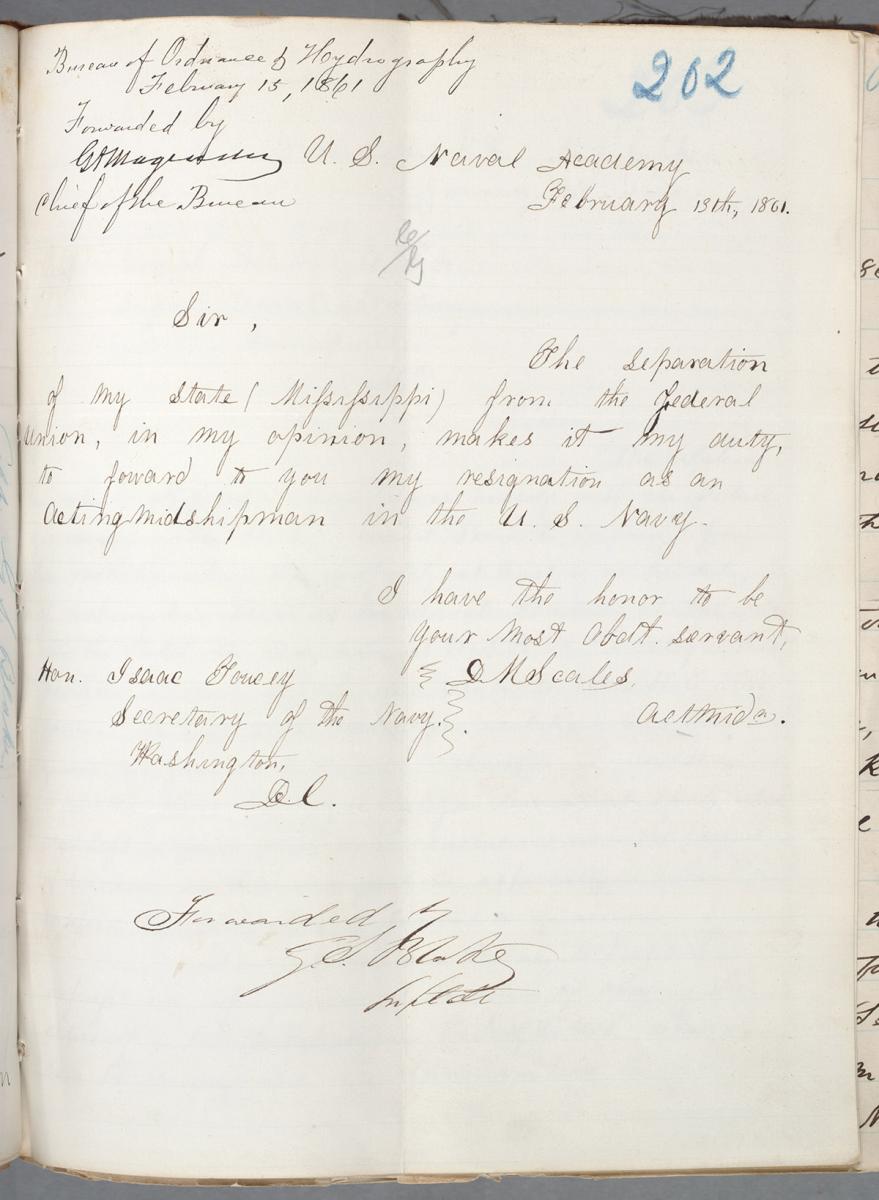 Bureau of Ordnance & Hydrography
February 15, 1861
202
Forwarded by
G A Magruder
Chief of the Bureau
U. S. Naval Academy
February 13th, 1861.
Sir,
The separation
of my state (Mississippi) from the Federal
Union, in my opinion, makes it my duty,
to foward to you my resignation as an
Acting Midshipman in the U. S. Navy.
I have the honor to be
your most obdt. servant,
D M Scales.
Act Midn.
Hon. Isaac Toucey
Secretary of the Navy.
Washington,
D.C.
Forwarded,
G. S. Blake
Supdt